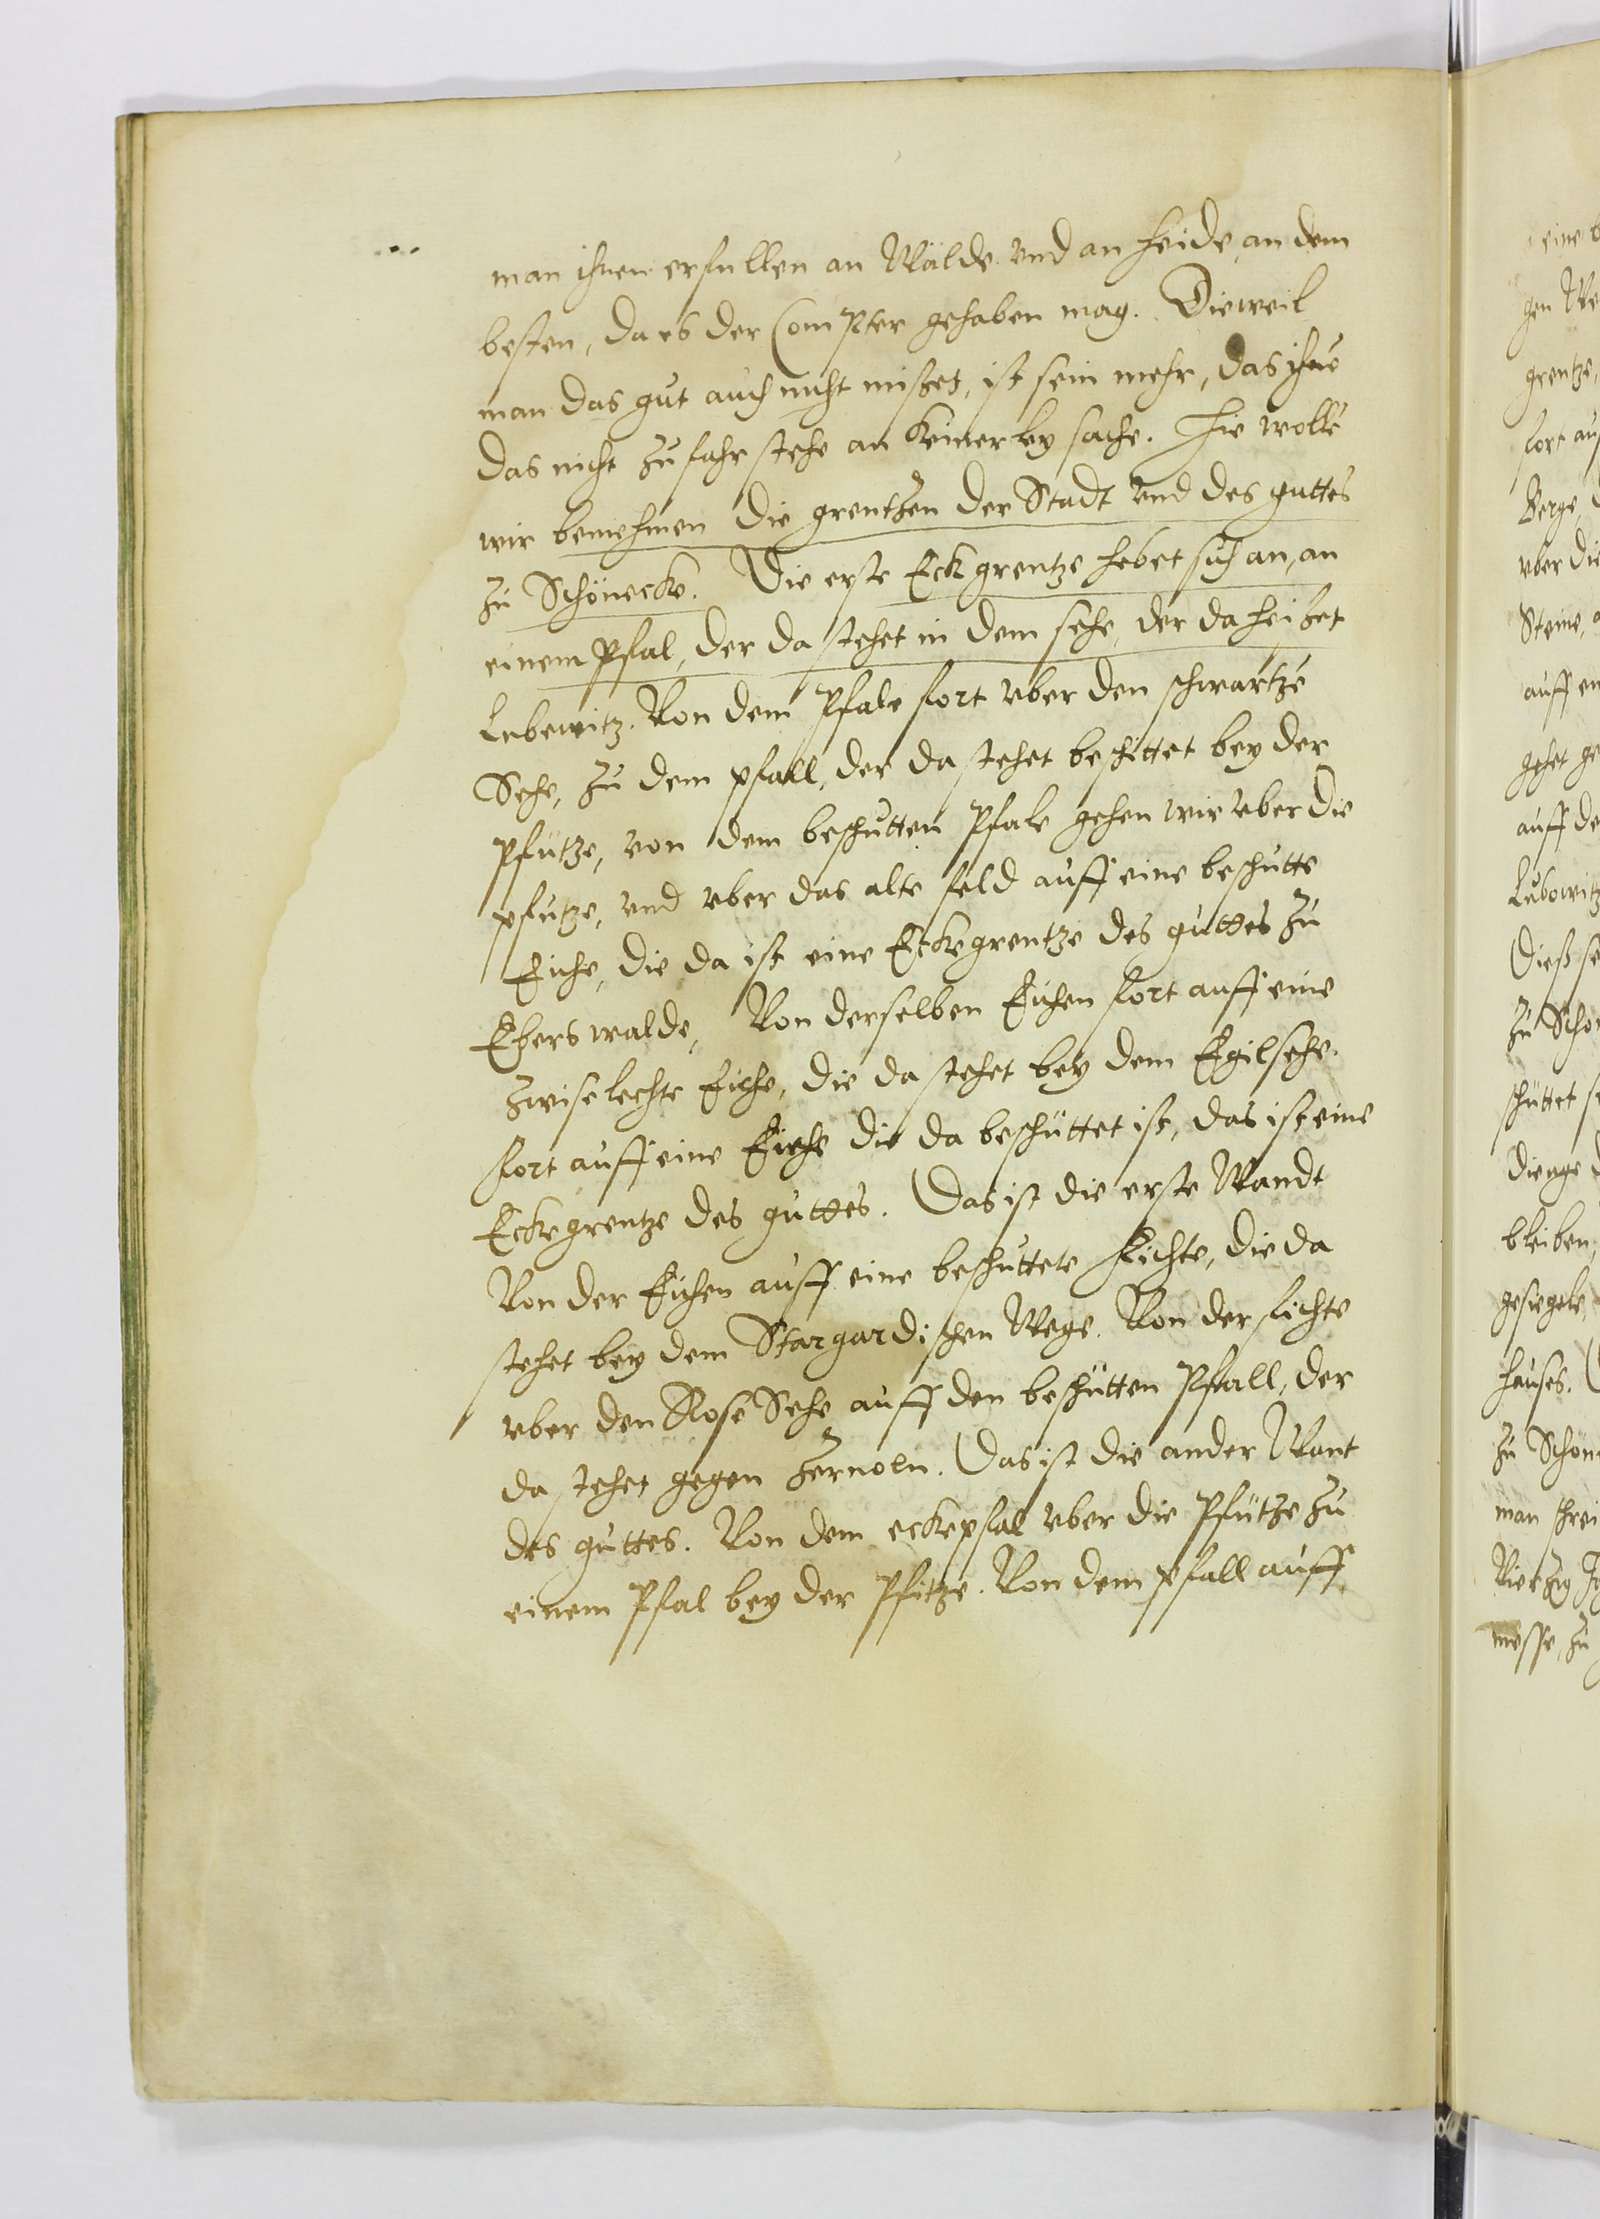 man ihnen erfullen an Walde vnd an heide, an dem
besten, da es der Compter gehaben mag. Dieweil
man das gut auch nicht mißet, ist sein mehr, das ihne
das nicht zu fahr stehe an keinerley sache. Hie wolle
wir benehmen die grentzen der Stadt vnd des guttes
zu Schönecke. Die erste Eck grentze hebet sich an, an
einem Pfal, der da stehet in dem sehe, der da heißet
Lubewitz. Von dem Pfale fort vber den schwartze
Sehe, zu dem pfall, der da stehet beschittet bey der
Pfütze, von dem beschutten Pfale gehen wir vber die
pfutze, vnd vber das alte feld auff eine beschutte
Eiche, die da ist eine Eckegrentze des guttes zu
Eberswalde, Von derselben Eichen fort auff eine
zwiselechte Eiche, die da stehet bey dem Egilsehe.
fort auff eine Eiche die da beschüttet ist, das ist eine
Eckegrentze des guttes. Das ist die erste Wandt
Von der Eichen auff eine beschuttete Fichte, die da
stehet bey dem Stargardischen Wege. Von der fichte
vber den Rose Sehe auff den beschütten Pfall, der
da stehet gegen Zernoln. Das ist die ander Want
des guttes. Von dem eckepfal vber die Pfütze zu
einem Pfal bey der Pfitze. Von dem pfall auff
eine
gen We
grentze,
fort auf
Berge
vber die
Steine, a
auff en
gehet ge
auff de
Lubowitz
Dieß se
zu Scho
schüttet
dienge
bleiben,
gesiegele,
hauses.
zu Schön
man schrei
Viertzig
messe, zu